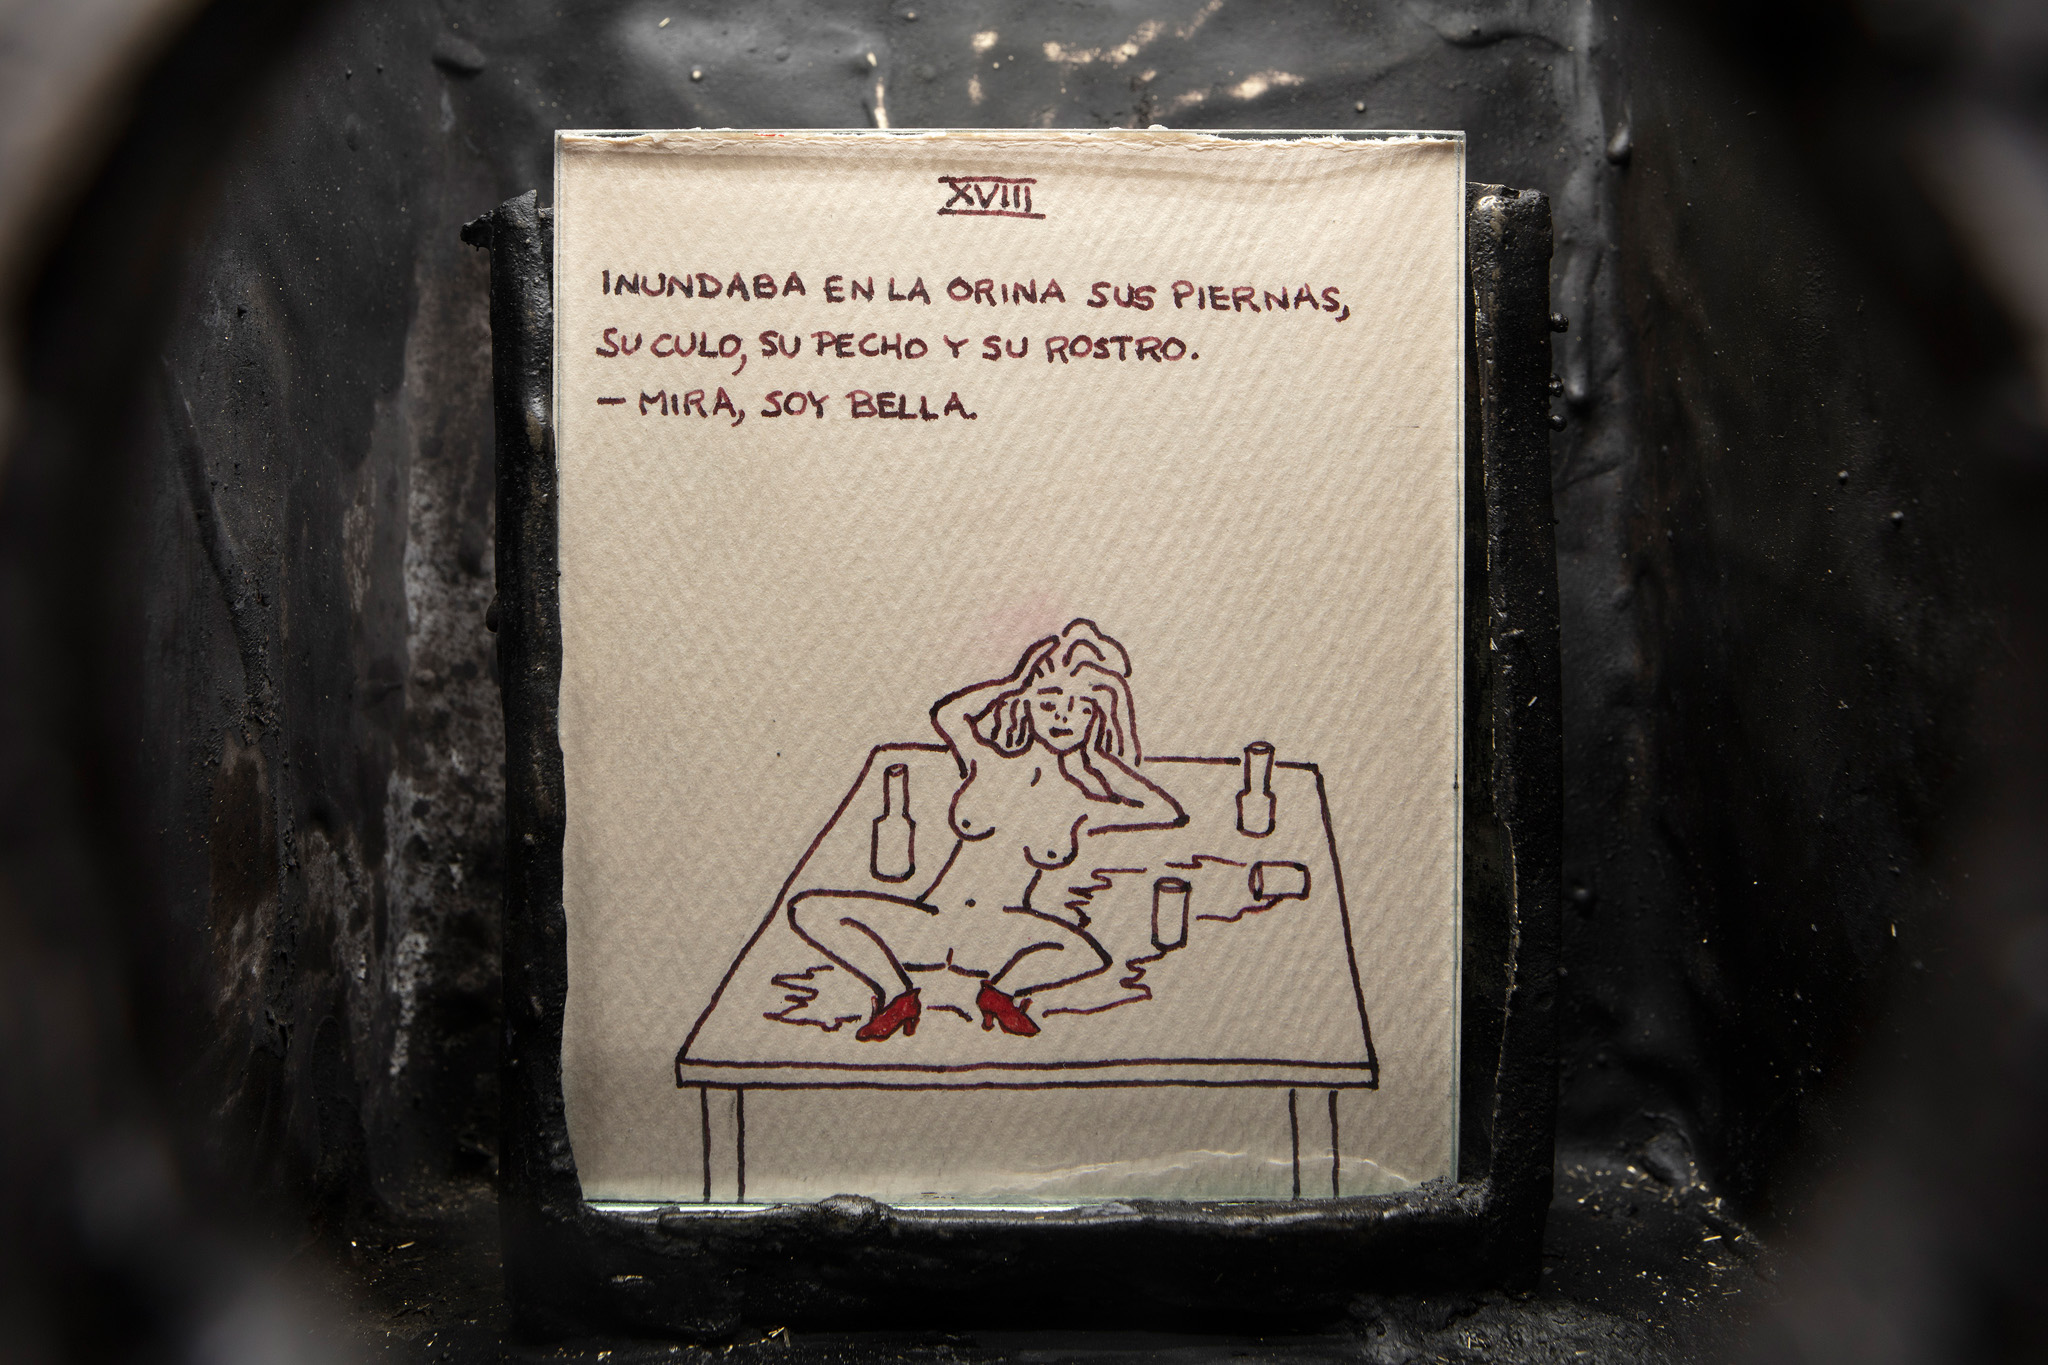 XVIII
INUNDABA EN LA ORINA SUS PIERNAS,
SU CULO, SU PECHO Y SU ROSTRO.
— MIRA, SOY BELLA.